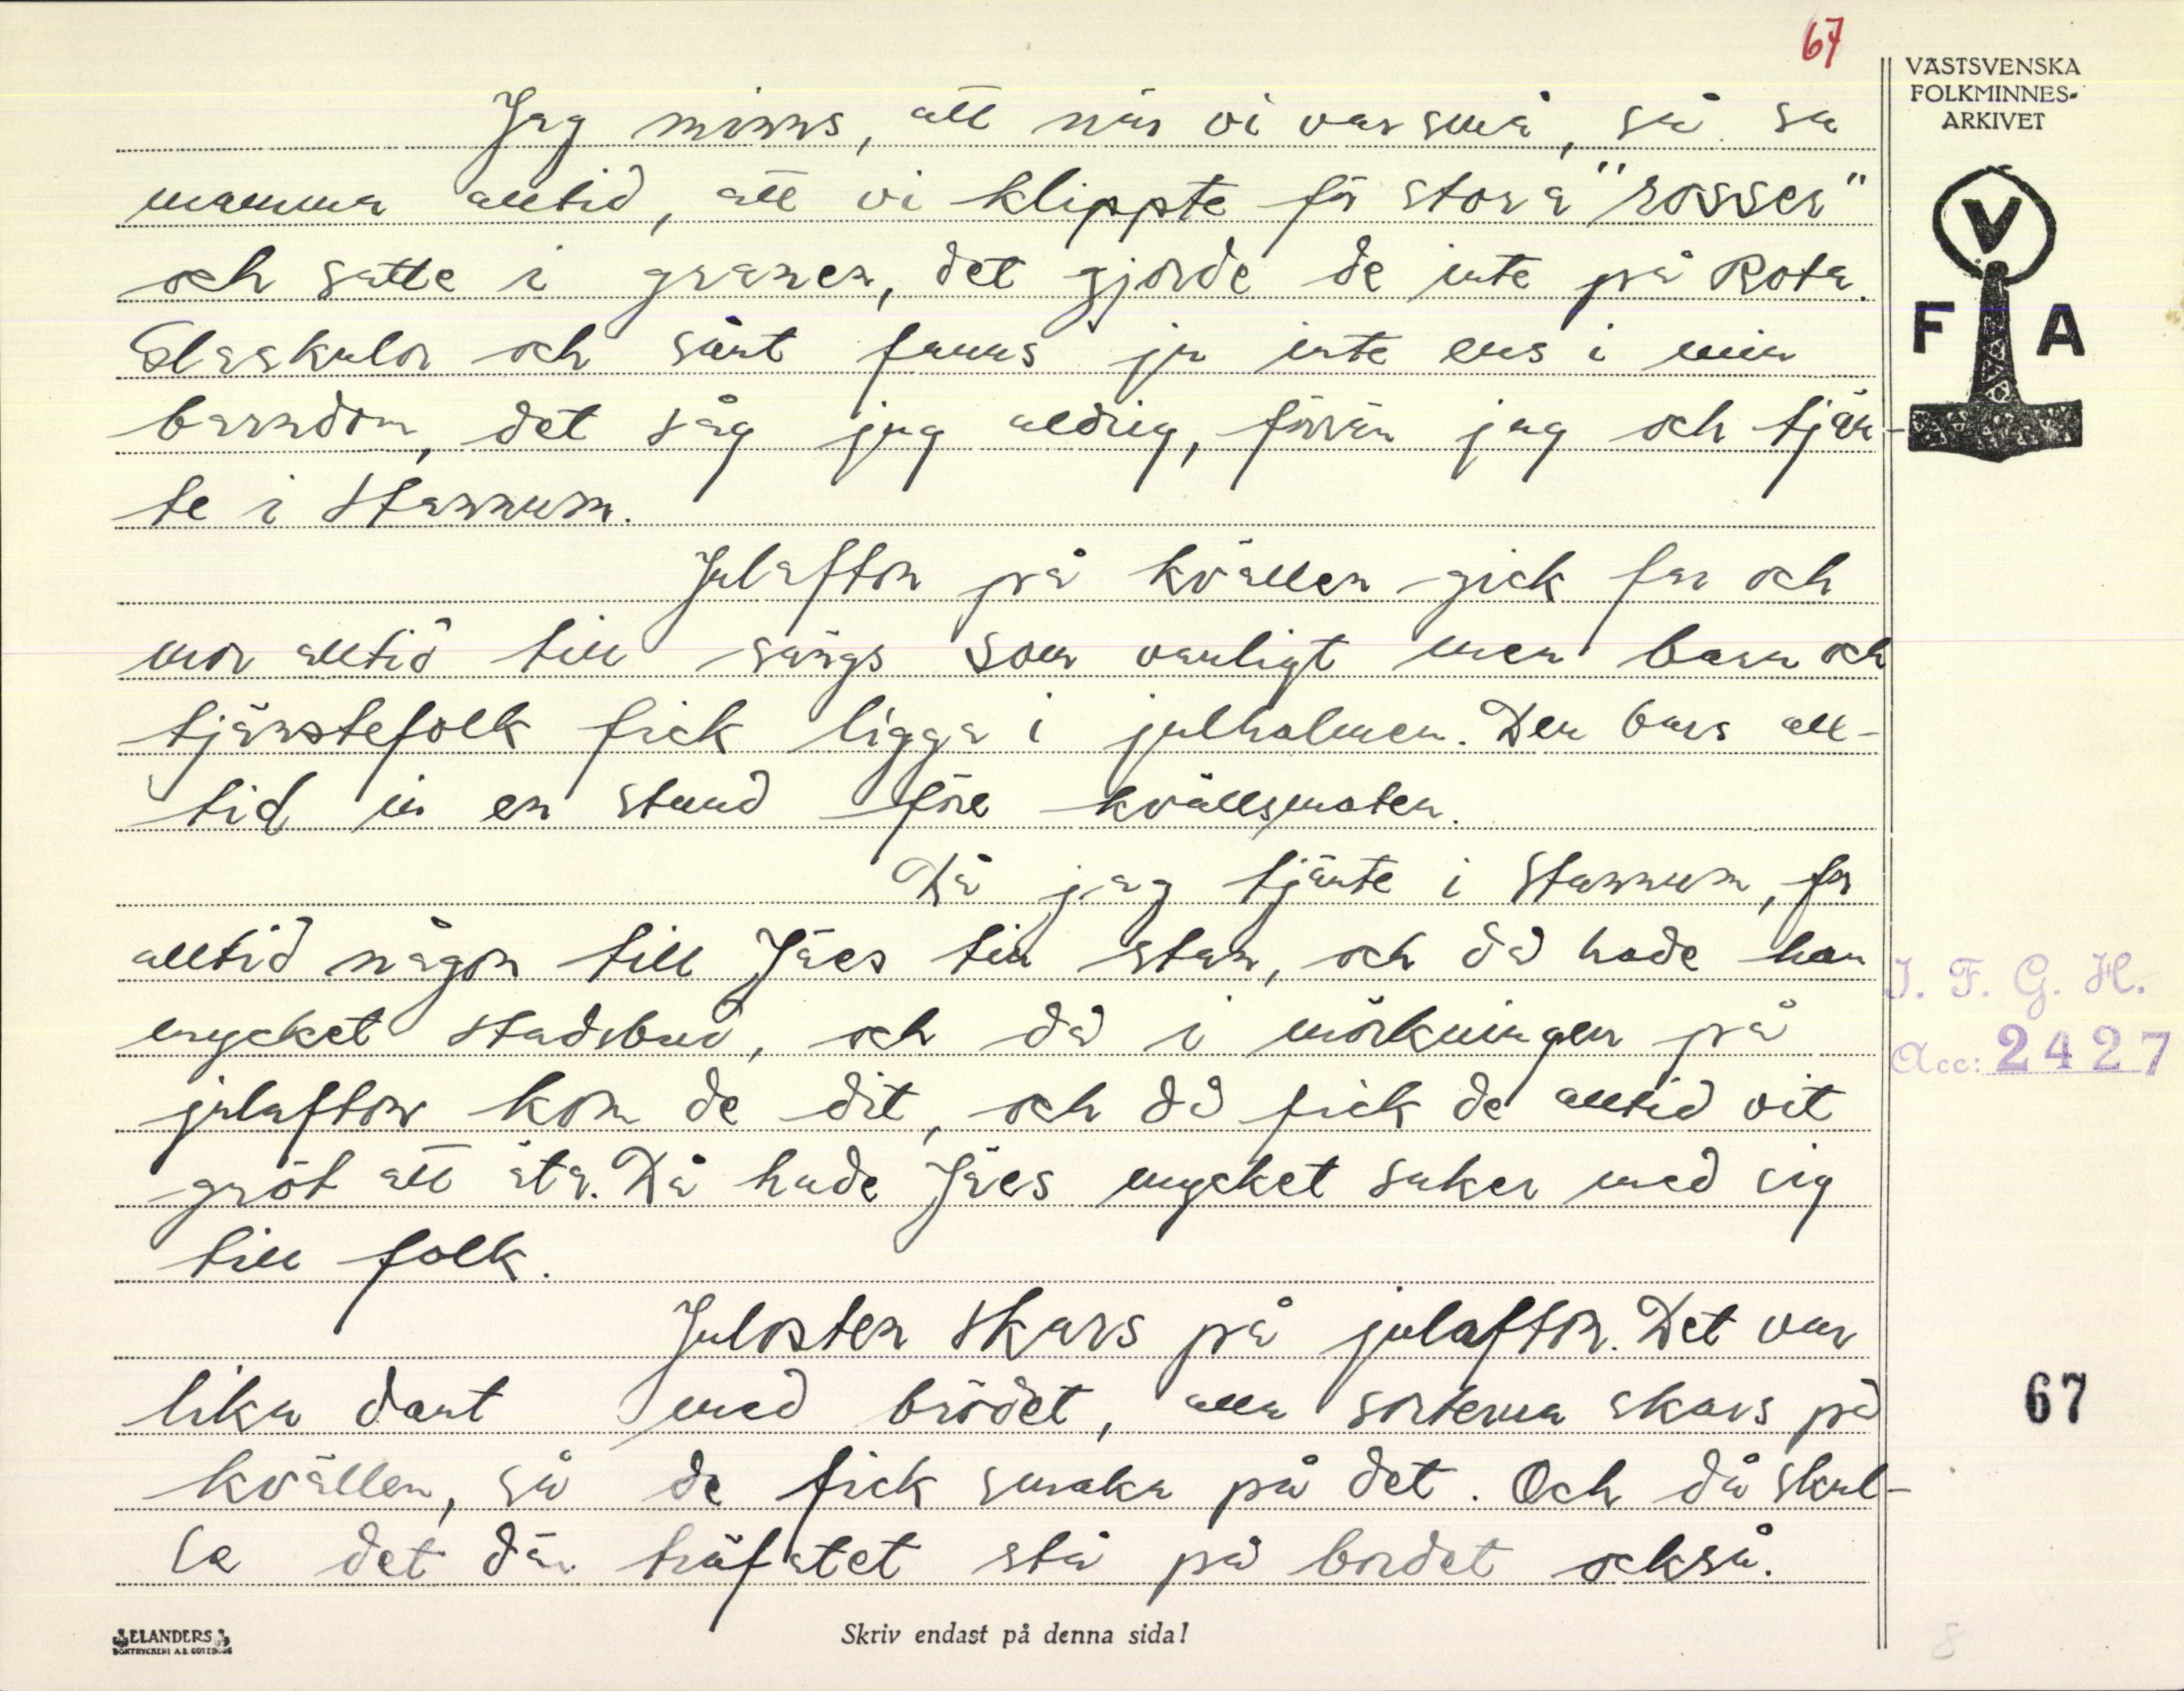 67
VÄSTSVENSKA
FOLKMINNES-
ARKIVET
V
F A
Jag minns, att när vi var små, så sa
mamma alltid, att vi klippte för stora "rosser"
och satte i granen, det gjorde de inte på Rota.
Glaskulor och sånt fanns ju inte ens i min
barndom, det såg jag aldrig, förrän jag och tjän-
te i Stannum.
Julafton på kvällen gick far och
mor alltid till sängs som vanligt men barn och
tjänstefolk fick ligga i julhalmen. Den bars all-
tid in en stund före kvällsmaten.
Då jag tjänte i Stannum, for
alltid någon till Jäes till stan, och då hade han
mycket stadsbud, och då i mörkningen på
julafton kom de dit, och då fick de alltid vit
gröt att äta. Då hade Jäes mycket saker med sig
till folk.
Julosten skars på julafton. Det var
lika dant med brödet, alla sorterna skars på
kvällen, så de fick smaka på det. Och då skul-
le det där träfatet stå på bordet också.
I. F. G. H.
Acc: 2427
67
ELANDERS
BOKTRYCKERI A.B. GÖTEBORG
Skriv endast på denna sida!
8